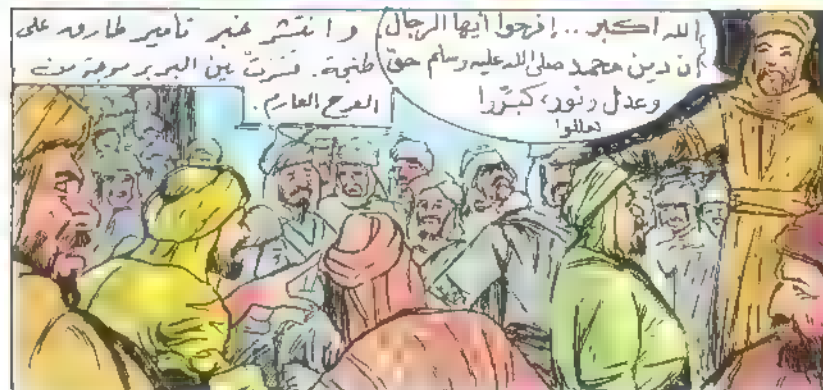 الله اكبر .. إفرحوا أيها الرجال
إن دين محمد صلى الله عليه وسلم حق
وعدل ونور، كبّروا
تعالوا
وانتشر خبر تأمير طارق على
طنجة. فسَرَتْ بين البربر موجة من
الفرح العارم.